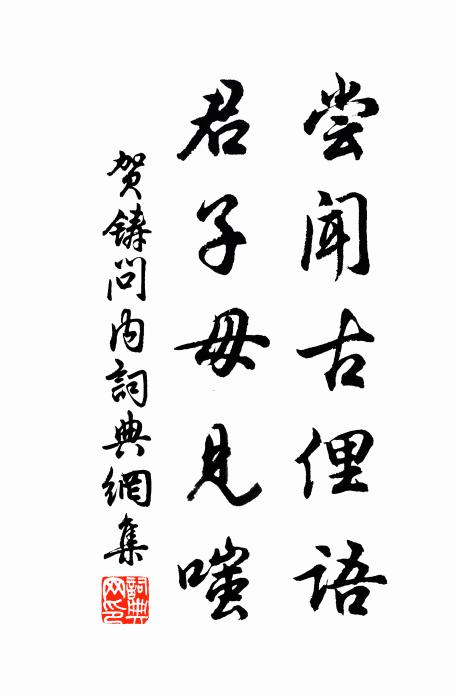 尝闻古俚语
君子毋见嗤
贺铸问内词典網集
詞典網印